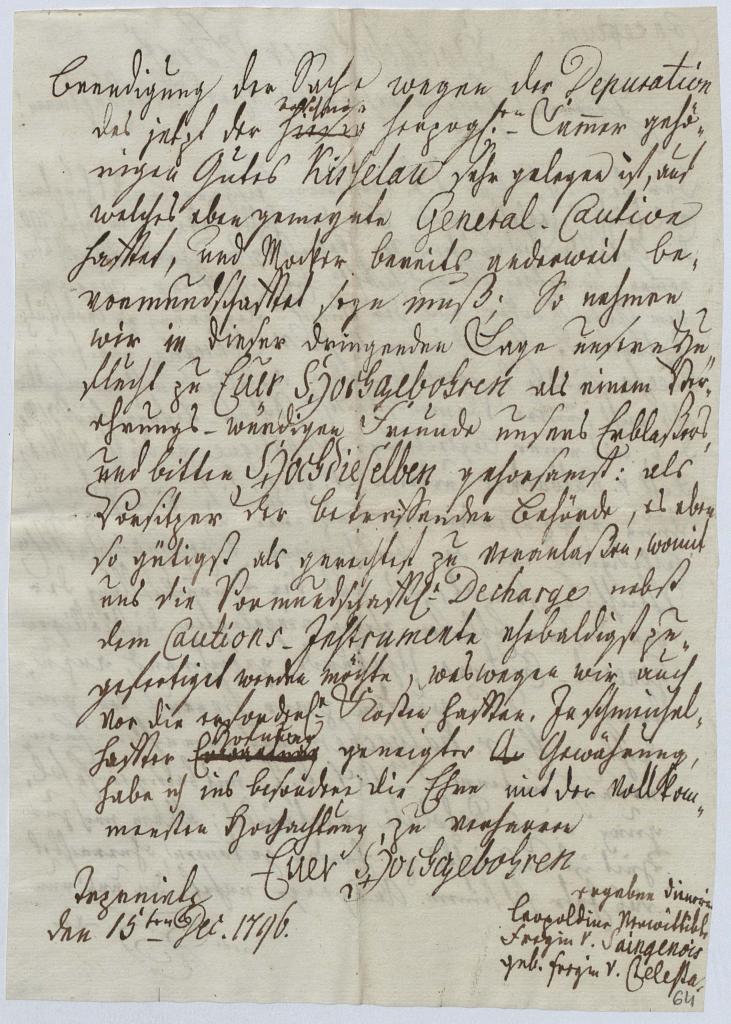 Beendigung der Sache wegen der Depuration
des jetzt der herzogl:en Cammer gehö-
rigen Gutes Kisselau sehr gelegen ist, auf
welches eben gemeynte General-Caution
haftet, und Mocker bereits anderweit be-
vormundschaftet seyn muß; So nehmen
wir in dieser dringenden Lage unsere Zu-
flucht zu Euer Hochgebohren als einem Ver-
ehrungs-würdigen Freunde unsers Erblaßers,
und bitten Hochdieselben gehorsamst: als
Vorsitzer der betreffenden Behörde, es eben
so gütigst als gerechtest zu veranlaßen, womit
uns die Vormundschaftl: Decharge nebst
dem Cautions-Instrumente ehebaldigst zu-
gefertiget werden möchte, weswegen wir auch
vor die erforderl:n Kosten haften. In schmeichel-
hafter Hofnung geneigter Gewährung,
habe ich ins besondere die Ehre mit der vollkom-
mensten Hochachtung zu verharren
Euer Hochgebohren
den 15ten Dec. 1796.
ergebene Dienerin
Leopoldine Verwittibte
Freyin v. Saingenois
geb. Freyin v. Celesta.
64